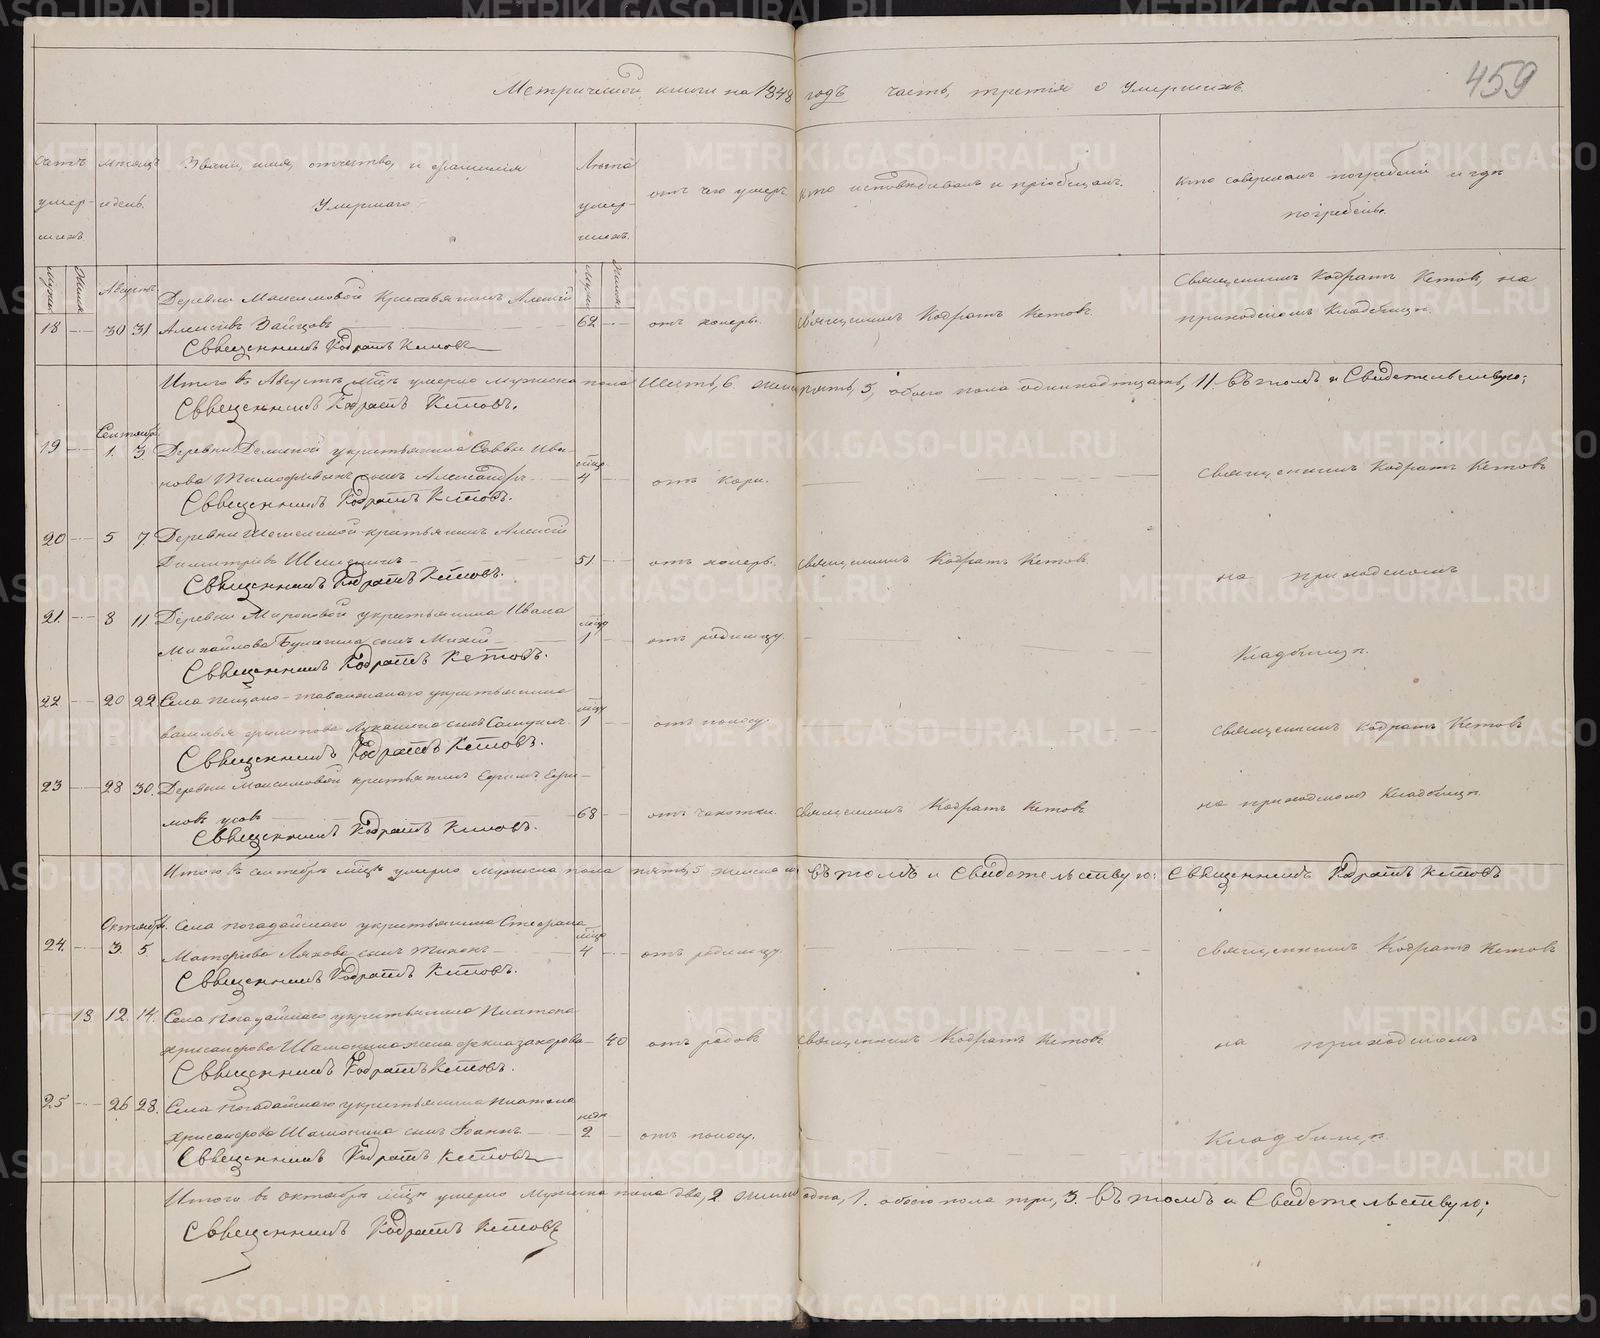 Метрической книги на 1848 годъ часть, третія о Умершихъ
459
Счетъ умер-шихъ
Мужск
Женск
Мѣсяцъ и день.
Званіе, имя, отчество, и фамилія Умершаго
Лѣта умер-шихъ.
Мужск
Женск
отъ чего умеръ
кто исповѣдывалъ и пріобщалъ.
кто совершалъ погребеніе и гдѣ погребены.
Августъ
Деревни Максимовой крестьянинъ Алексѣй
18 30 31 Алексѣевъ Зайцовъ 62 отъ холеры. священникъ Кодратъ Кетовъ. Священникъ Кодратъ Кетовъ, на приходскомъ Кладбищѣ.
Священникъ Кодратъ Кетовъ
Итого въ Августѣ мцѣ умерло Мужска пола Шесть, 6. женска пять, 5, обоего пола одиннадцать, 11. Въ томъ и Свидетельствую;
Священникъ Кодратъ Кетовъ.
Сентябрь
19 1. 3. Деревни укрестьянина Саввы Ива-
нова сынъ Александръ мцъ 4 отъ кори. Священникъ Кодратъ Кетовъ
Священникъ Кодратъ Кетовъ.
20 5 7. Деревни крестьянинъ Алексѣй
Димитріевъ 51 отъ холеры. священникъ Кодратъ Кетовъ на приходскомъ
Священникъ Кодратъ Кетовъ.
21. 8 11 Деревни Мироновой укрестьянина Ивана
Михайлова сынъ 1 отъ родимцу. Кладбищѣ.
Священникъ Кодратъ Кетовъ.
22 20 22 Села укрестьянина
Василья Филипова сынъ 1 отъ поносу. священникъ Кодратъ Кетовъ
Священникъ Кодратъ Кетовъ.
23 28 30. Деревни Максимовой крестьянинъ Ефимъ Ефи-
мовъ усовъ 68 отъ чахотки. священникъ Кодратъ Кетовъ на приходскомъ Кладбищѣ.
Священникъ Кодратъ Кетовъ.
Итого въ сентябрѣ мцѣ умерло Мужска пола пять, 5 женска Въ томъ и Свидетельствую: Священникъ Кодратъ Кетовъ
Октябрь.
Села укрестьянина Стефана
24. 3. 5. Ляхова сынъ Тихонъ 4 отъ родимцу. священникъ Кодратъ Кетовъ
Священникъ Кодратъ Кетовъ.
13. 12. 14. Села укрестьянина Платона
Хрисанфова жена Фекла Захарова 40 отъ родовъ священникъ Кодратъ Кетовъ на приходскомъ
Священникъ Кодратъ Кетовъ.
25 26 28. Села укрестьянина Платона
Хрисанфова сынъ Іоаннъ нед 2 отъ поносу. Кладбищѣ
Священникъ Кодратъ Кетовъ
Итого въ октябрѣ мцѣ умерло Мужска пола два, 2 женска одна, 1. обоего пола три, 3. Въ томъ и Свидетельствую;
Священникъ Кодратъ Кетовъ
METRIKI.GASO-URAL.RU